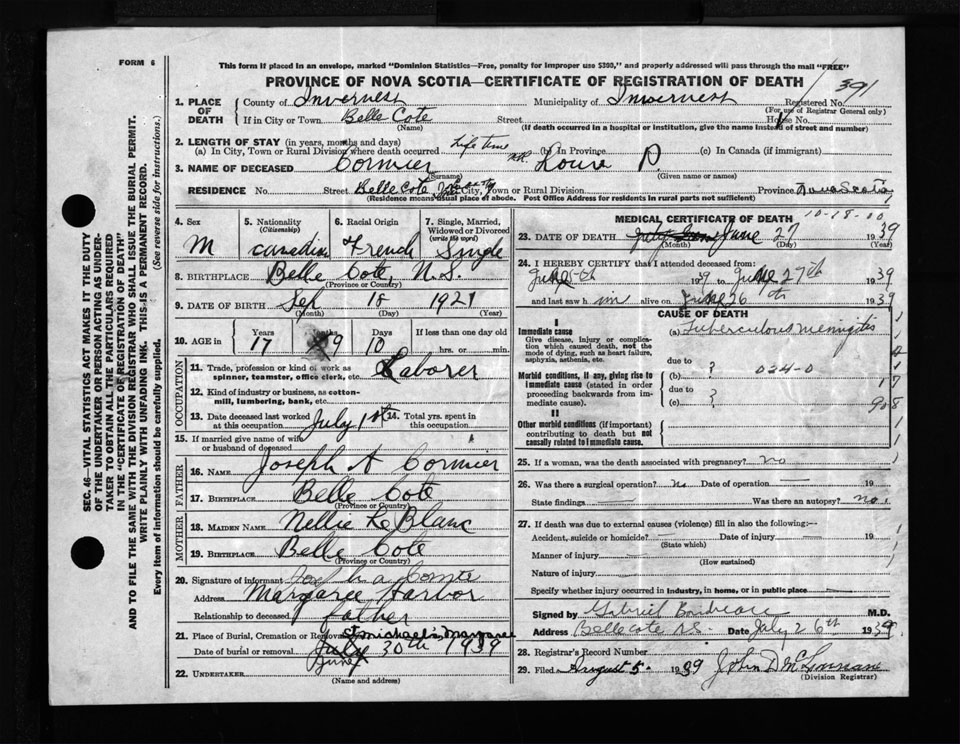 FORM 6
This form if placed in an envelope, marked "Dominion Statistics—Free, penalty for improper use $300," and properly addressed will pass through the mail "FREE"
PROVINCE OF NOVA SCOTIA—CERTIFICATE OF REGISTRATION OF DEATH
391
SEC. 46—VITAL STATISTICS ACT MAKES IT THE DUTY
OF THE UNDERTAKER OR PERSON ACTING AS UNDER-
TAKER TO OBTAIN ALL THE PARTICULARS REQUIRED
IN THE "CERTIFICATE OF REGISTRATION OF DEATH"
AND TO FILE THE SAME WITH THE DIVISION REGISTRAR WHO SHALL ISSUE THE BURIAL PERMIT.
WRITE PLAINLY WITH UNFADING INK. THIS IS A PERMANENT RECORD.
Every item of Information should be carefully supplied. (See reverse side for instructions.)
1. PLACE OF DEATH
County of Inverness Municipality of Inverness Registered No.
(For use of Registrar General only)
If in City or Town Belle Cote Street House No.
(Name) (If death occurred in a hospital or institution, give the name instead of street and number)
2. LENGTH OF STAY (in years, months and days)
(a) In City, Town or Rural Division where death occurred Life Time (b) In Province (c) In Canada (if immigrant)
3. NAME OF DECEASED Cormier
(Surname) (Given name or names)
RESIDENCE No. Street Belle Cote City, Town or Rural Division Province Nova Scotia
(Residence means usual place of abode. Post Office Address for residents in rural parts not sufficient)
4. Sex M
5. Nationality (Citizenship) Canadian
6. Racial Origin French
7. Single, Married, Widowed or Divorced (write the word) Single
8. BIRTHPLACE Belle Cote, N.S.
(Province or Country)
9. DATE OF BIRTH Sep 18 1921
(Month) (Day) (Year)
10. AGE in Years Months Days If less than one day old
17 9 10 hrs. or min.
OCCUPATION
11. Trade, profession or kind of work as spinner, teamster, office clerk, etc. Laborer
12. Kind of industry or business, as cotton-mill, lumbering, bank, etc.
13. Date deceased last worked at this occupation July 1st 14. Total yrs. spent in this occupation
15. If married give name of wife or husband of deceased
FATHER
16. NAME Joseph A Cormier
17. BIRTHPLACE Belle Cote
(Province or Country)
MOTHER
18. MAIDEN NAME Nellie Le Blanc
19. BIRTHPLACE Belle Cote
(Province or Country)
20. Signature of informant
Address Margaree Harbor
Relationship to deceased father
21. Place of Burial, Cremation or Removal St Michael's, Margaree
Date of burial or removal July 30th 1939
June
22. UNDERTAKER
(Name and address)
MEDICAL CERTIFICATE OF DEATH 10-18-00
23. DATE OF DEATH June 27 1939
(Month) (Day) (Year)
24. I HEREBY CERTIFY that I attended deceased from:
June 39 to June 27th 1939
and last saw h im alive on June 26th 1939
CAUSE OF DEATH
I
Immediate cause
Give disease, injury or complication which caused death, not the mode of dying, such as heart failure, asphyxia, asthenia, etc.
(a) Tuberculous meningitis
due to
Morbid conditions, if any, giving rise to immediate cause (stated in order proceeding backwards from immediate cause).
(b) ? 024-0
due to
(c) ?
II
Other morbid conditions (if important) contributing to death but not causally related to immediate cause.
25. If a woman, was the death associated with pregnancy? no
26. Was there a surgical operation? no Date of operation — 19
State findings — Was there an autopsy? no
27. If death was due to external causes (violence) fill in also the following:—
Accident, suicide or homicide? — Date of injury — 19
(State which)
Manner of injury —
(How sustained)
Nature of injury —
Specify whether injury occurred in Industry, in home, or in public place
Signed by Gabriel Boudreau M.D.
Address Belle Cote N.S. Date July 26th 1939
28. Registrar's Record Number
29. Filed August 5 1939
(Division Registrar)